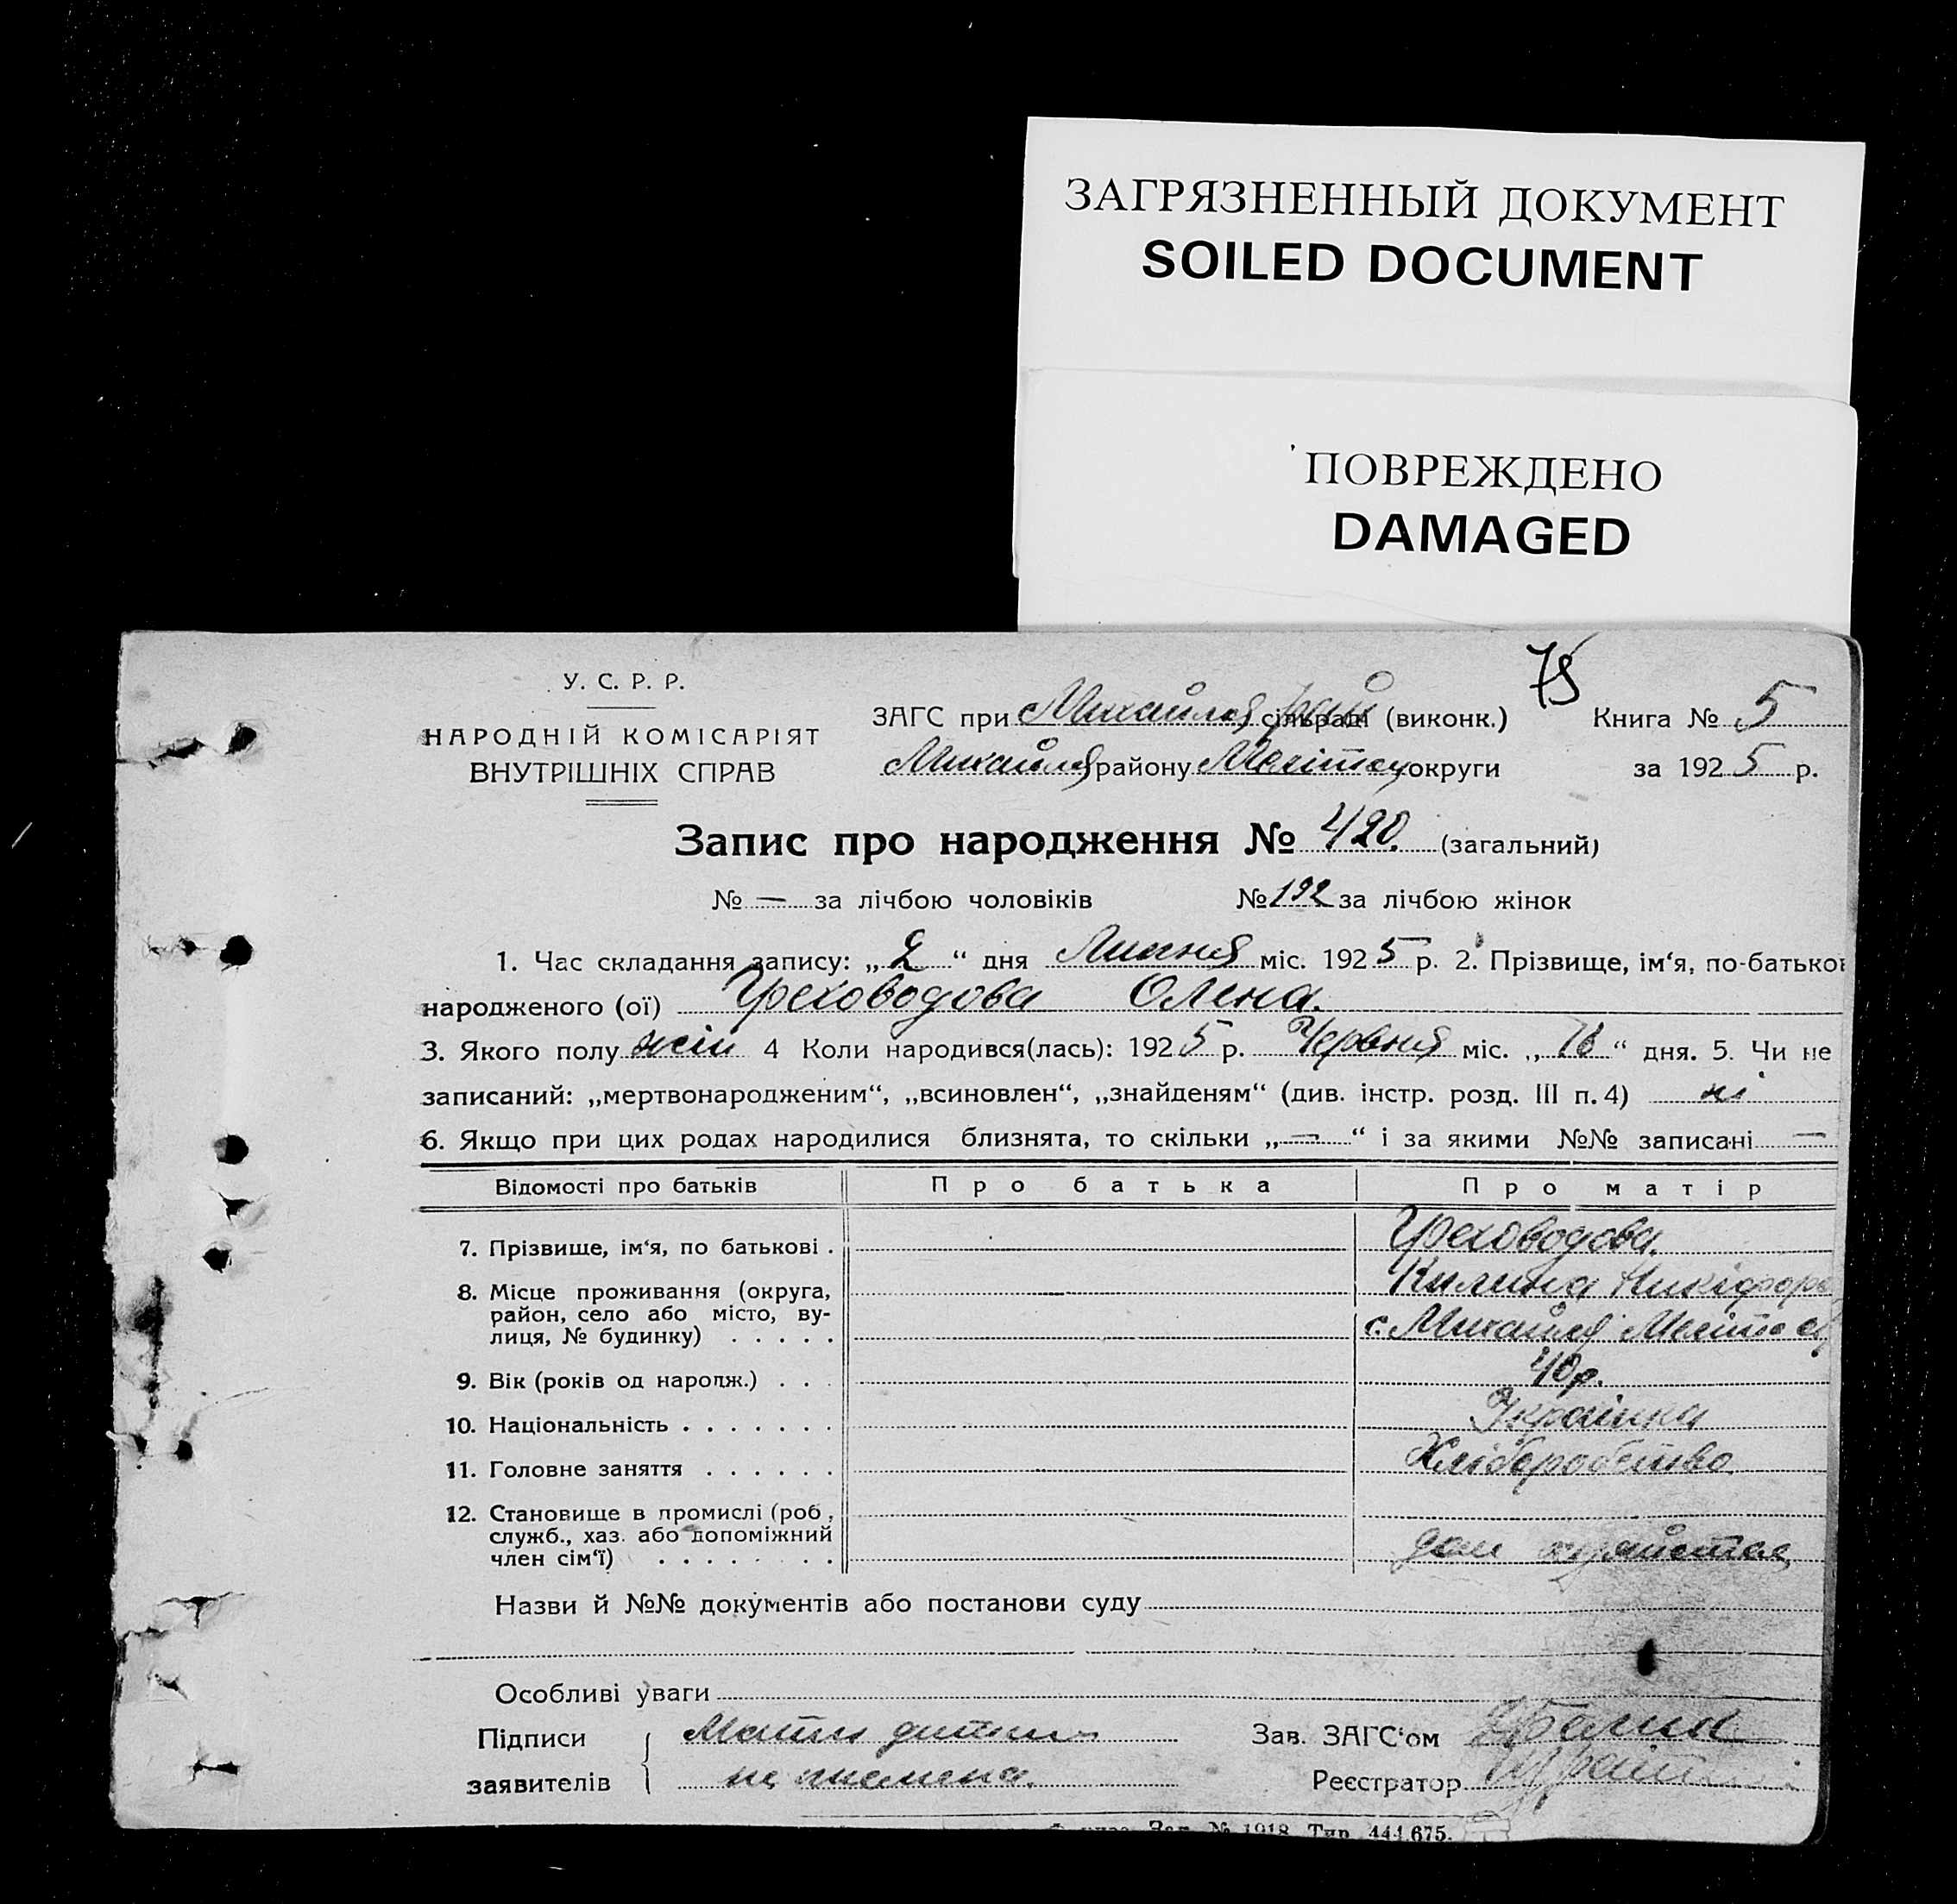 ЗАГРЯЗНЕННЫЙ ДОКУМЕНТ
SOILED DOCUMENT
ПОВРЕЖДЕНО
DAMAGED
75
У. С. Р. Р.
НАРОДНІЙ КОМІСАРІЯТ
ВНУТРІШНІХ СПРАВ
ЗАГС при Михайлів рай сільраді (виконк.) Книга № 5
Михайлів району Мелітоп округи за 1925 р.
Запис про народження № 420. (загальний)
№ — за лічбою чоловіків № 192 за лічбою жінок
1. Час складання запису: „2“ дня Липня міс. 1925 р. 2. Прізвище, ім‘я, по-батьков
народженого (ої) Греховодова Олена.
3. Якого полу жін 4 Коли народився(лась): 1925 р. Червня міс. „ “ дня. 5. Чи не
записаний: „мертвонародженим“, „всиновлен“, „знайденям“ (див. інстр. розд. III п. 4) ні
6. Якщо при цих родах народилися близнята, то скільки „—“ і за якими №№ записані —
Відомості про батьків Про батька Про матір
7. Прізвище, ім‘я, по батькові . Греховодова.
Килина Никіфоров
8. Місце проживання (округа,
район, село або місто, ву-
лиця, № будинку) . . . . . с. Михайлів Меліто
9. Вік (років од народж.) . . . 40 р.
10. Національність . . . . . . . Українка
11. Головне заняття . . . . . . Хліборобство
12. Становище в промислі (роб.,
служб., хаз. або допоміжний
член сім‘ї) . . . . . . . дом
Назви й №№ документів або постанови суду
Особливі уваги
Підписи Мати дитини Зав. ЗАГС‘ом
заявителів не писмена. Реєстратор
Зак. № 1918 Тир. 444.675.